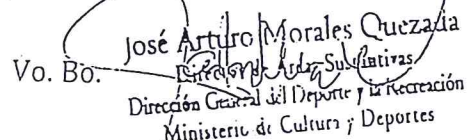 José Arturo Morales Quezada
Vo. Bo.
Director de Areas Sustantivas
Dirección General del Deporte y la Recreación
Ministerio de Cultura y Deportes